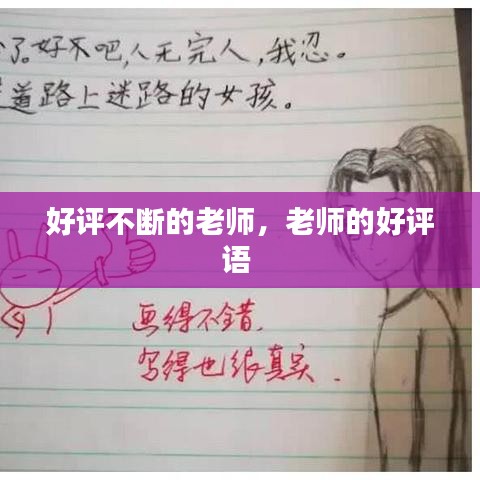 了。好不吧,人无完人,我忍。
道路上迷路的女孩。
好评不断的老师，老师的好评
语
画得不错,
写得也很真实.